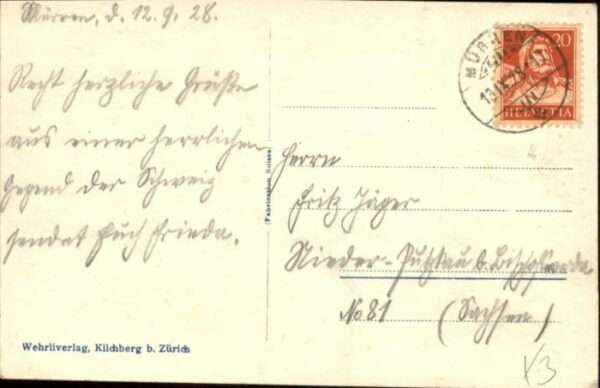 Mürren, d. 12.9.28.
Recht herzliche Grüße
aus einer herrlichen
Gegend der Schweiz
sendet Euch Frieda.
Wehrliverlag, Kilchberg b. Zürich
MÜRREN
13.IX.28.-17
20
HELVETIA
Herrn
Fritz Jäger
Nieder-Putzkau b. Bischofswerda
No 81 (Sachsen)
x3